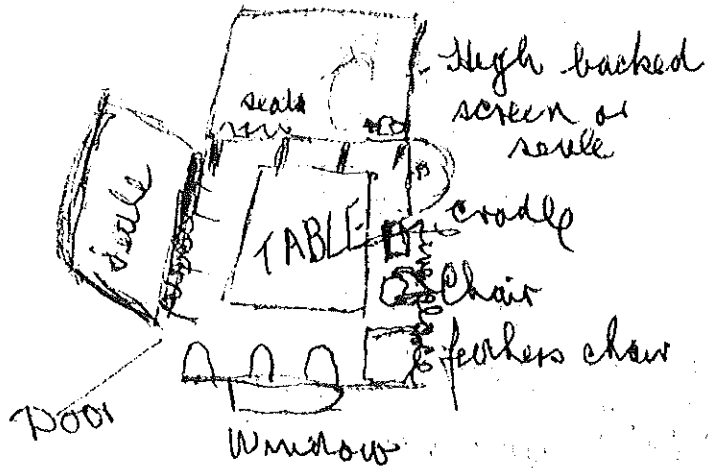 High backed
screen or
settle
seats
settle
TABLE
cradle
fireplace
Chair
fathers chair
Door
Window